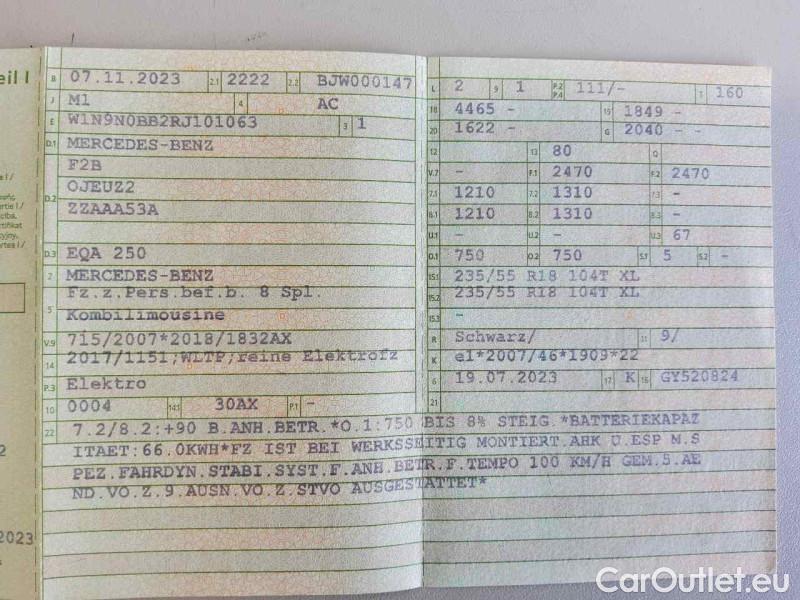 eil I
B 07.11.2023 2.1 2222 2.2 BJW000147
J M1 4 AC
E W1N9N0BB2RJ101063 3 1
D.1 MERCEDES-BENZ
F2B
D.2 OJEUZ2
ZZAAA53A
D.3 EQA 250
2 MERCEDES-BENZ
5 Fz.z.Pers.bef.b. 8 Spl.
Kombilimousine
V.9 715/2007*2018/1832AX
14 2017/1151;WLTP;reine Elektrofz
P.3 Elektro
10 0004 14.1 30AX P.1 -
L 2 9 1 P.2 P.4 111/- T 160
18 4465 - 19 1849 - -
20 1622 - - G 2040 - -
12 13 80 Q
V.7 - F.1 2470 F.2 2470
7.1 1210 7.2 1310 7.3 -
8.1 1210 8.2 1310 8.3 -
U.1 - U.2 - U.3 67
O.1 750 O.2 750 S.1 5 S.2 -
15.1 235/55 R18 104T XL
15.2 235/55 R18 104T XL
15.3 -
R Schwarz/ 11 9/
K e1*2007/46*1909*22
6 19.07.2023 17 K 16 GY520824
21
22 7.2/8.2:+90 B.ANH.BETR.*O.1:750 BIS 8% STEIG.*BATTERIEKAPAZ
ITAET:66.0KWH*FZ IST BEI WERKSSEITIG MONTIERT.AHK U.ESP M.S
PEZ.FAHRDYN.STABI.SYST.F.ANH.BETR.F.TEMPO 100 KM/H GEM.5.AE
ND.VO.Z.9.AUSN.VO.Z.STVO AUSGESTATTET*
2023
CarOutlet.eu